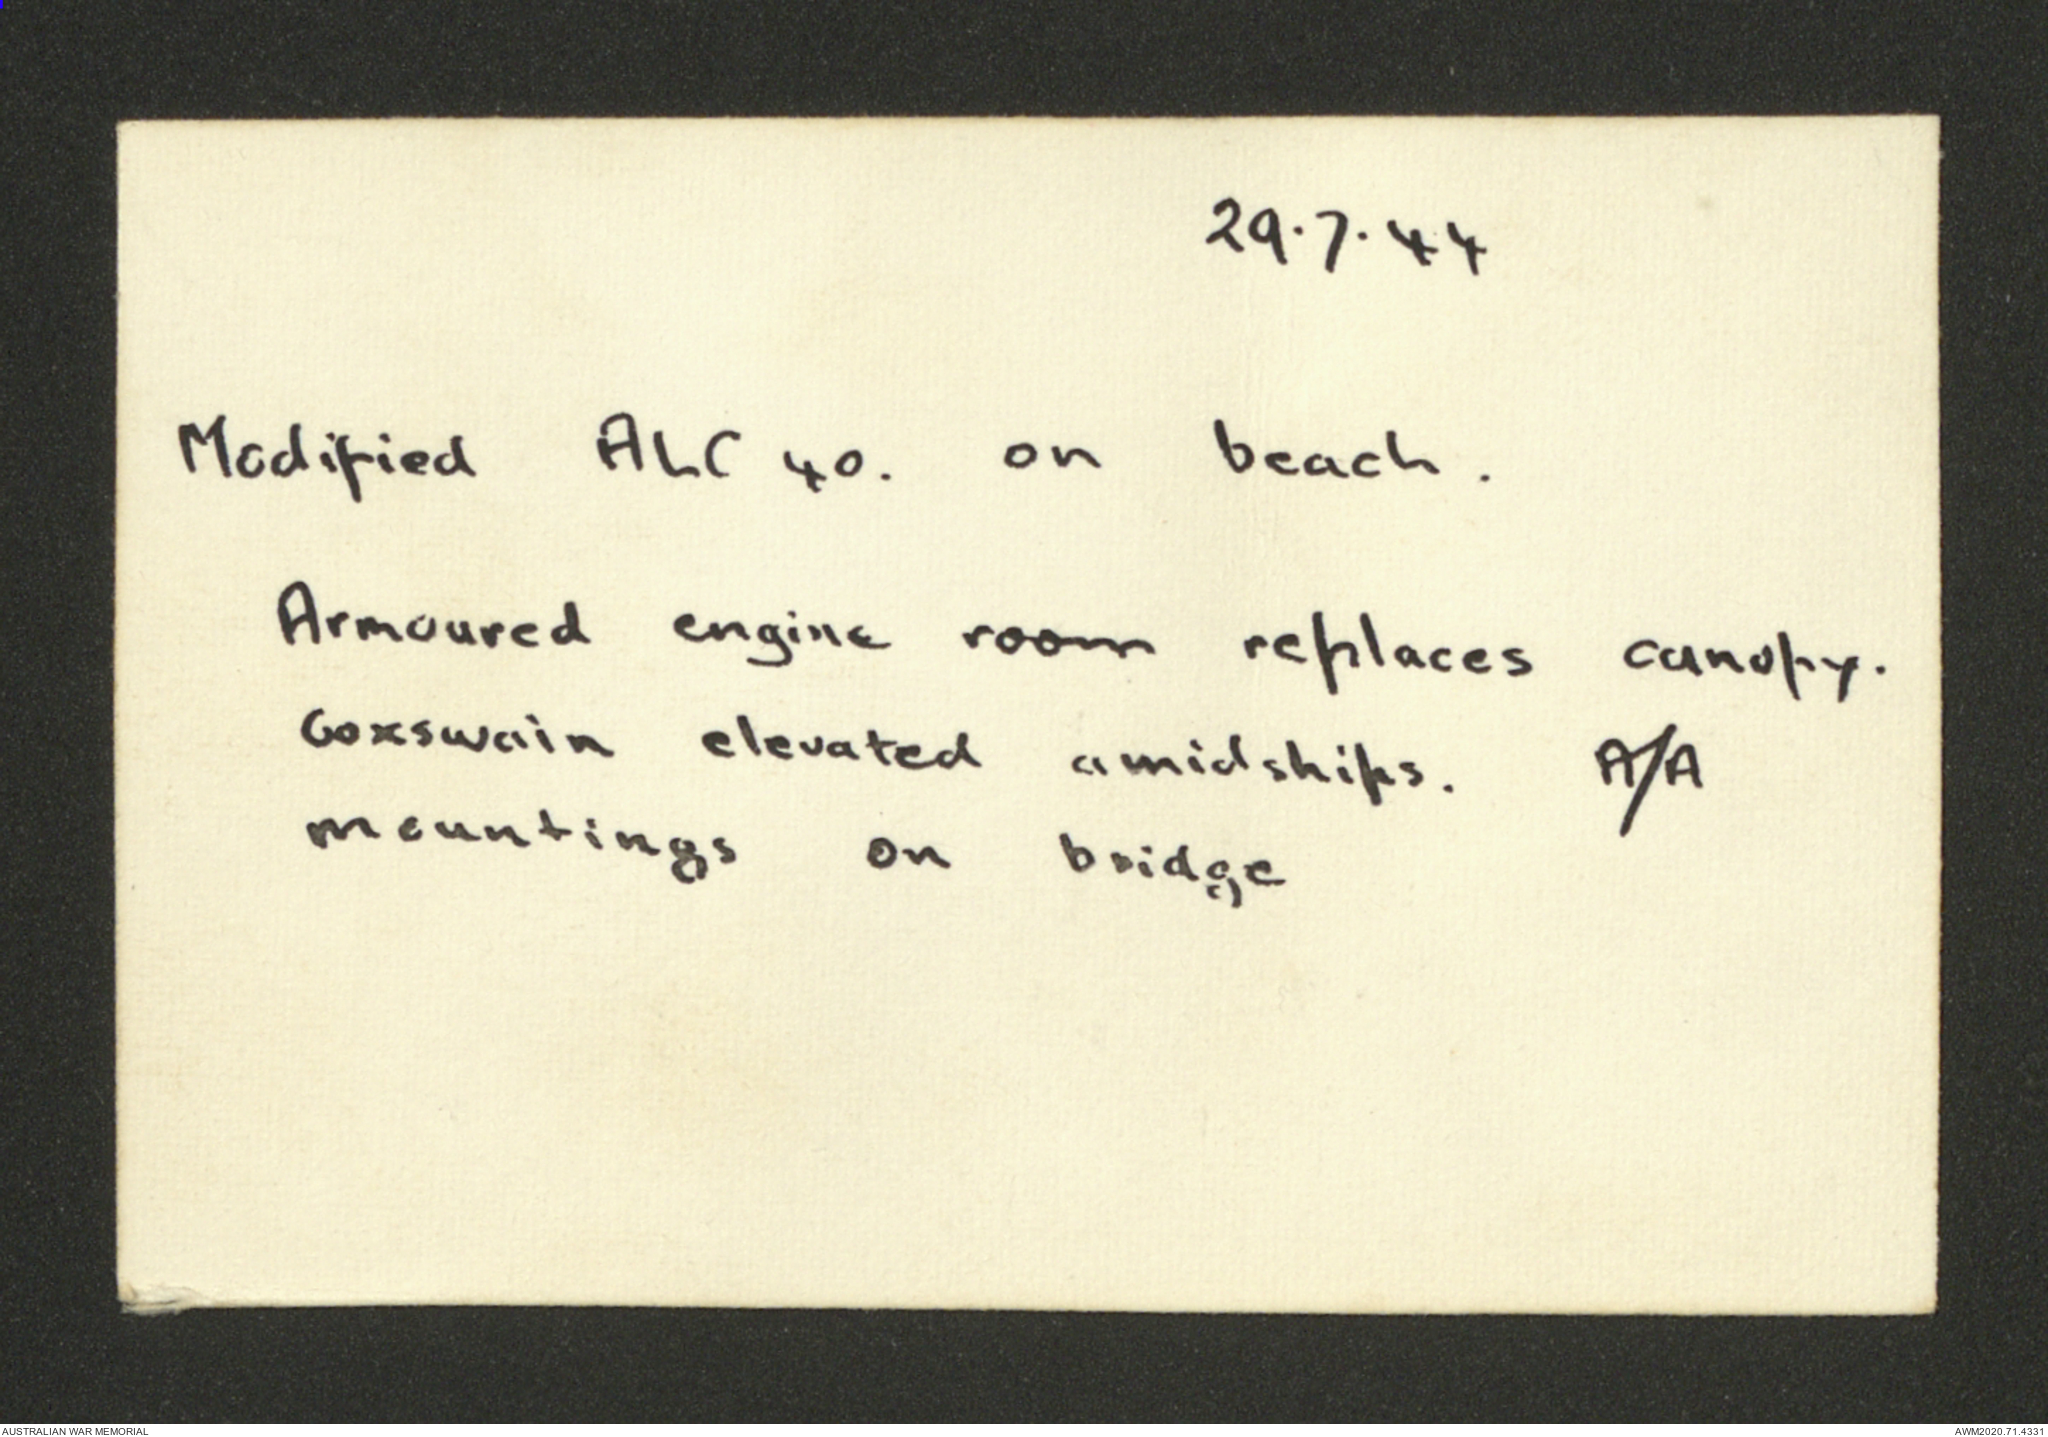 29.7.44
Modified ALC 40. on beach.
Armoured engine room replaces canopy.
Coxswain elevated amidships. A/A
mountings on bridge
AUSTRALIAN WAR MEMORIAL
AWM2020.71.4331